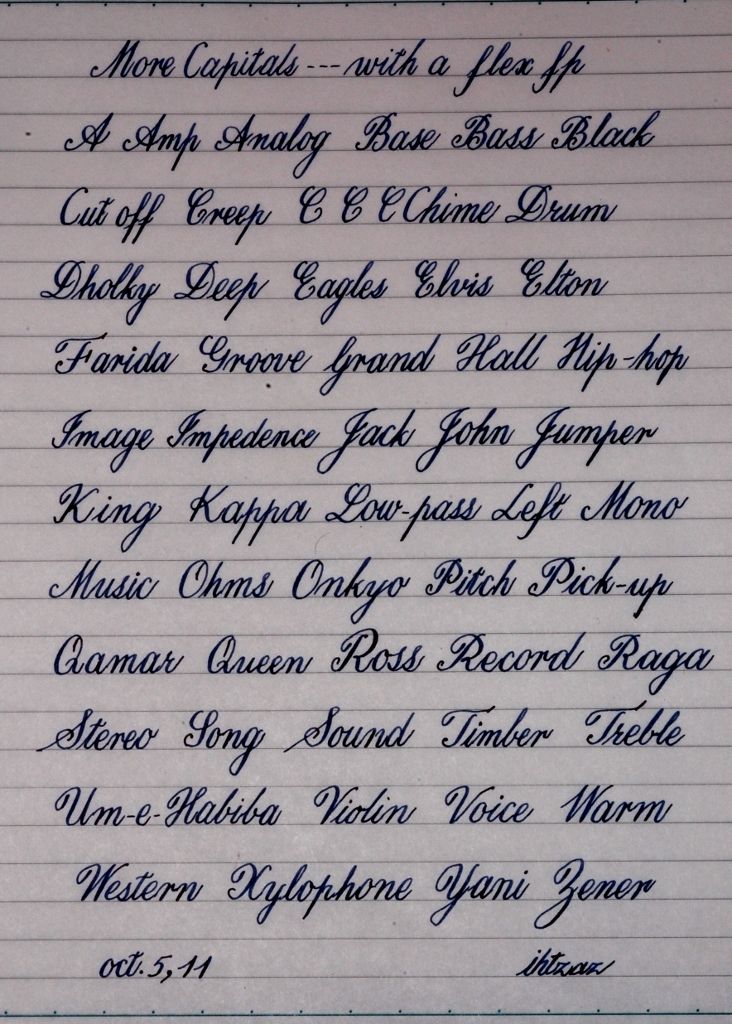 More Capitals --- with a flex fp
A Amp Analog Base Bass Black
Cut off Creep C C C Chime Drum
Dholky Deep Eagles Elvis Elton
Farida Groove Grand Hall Hip-hop
Image Impedence Jack John Jumper
King Kappa Low-pass Left Mono
Music Ohms Onkyo Pitch Pick-up
Qamar Queen Ross Record Raga
Stereo Song Sound Timber Treble
Um-e-Habiba Violin Voice Warm
Western Xylophone Yani Zener
oct. 5, 11 ihtzaz